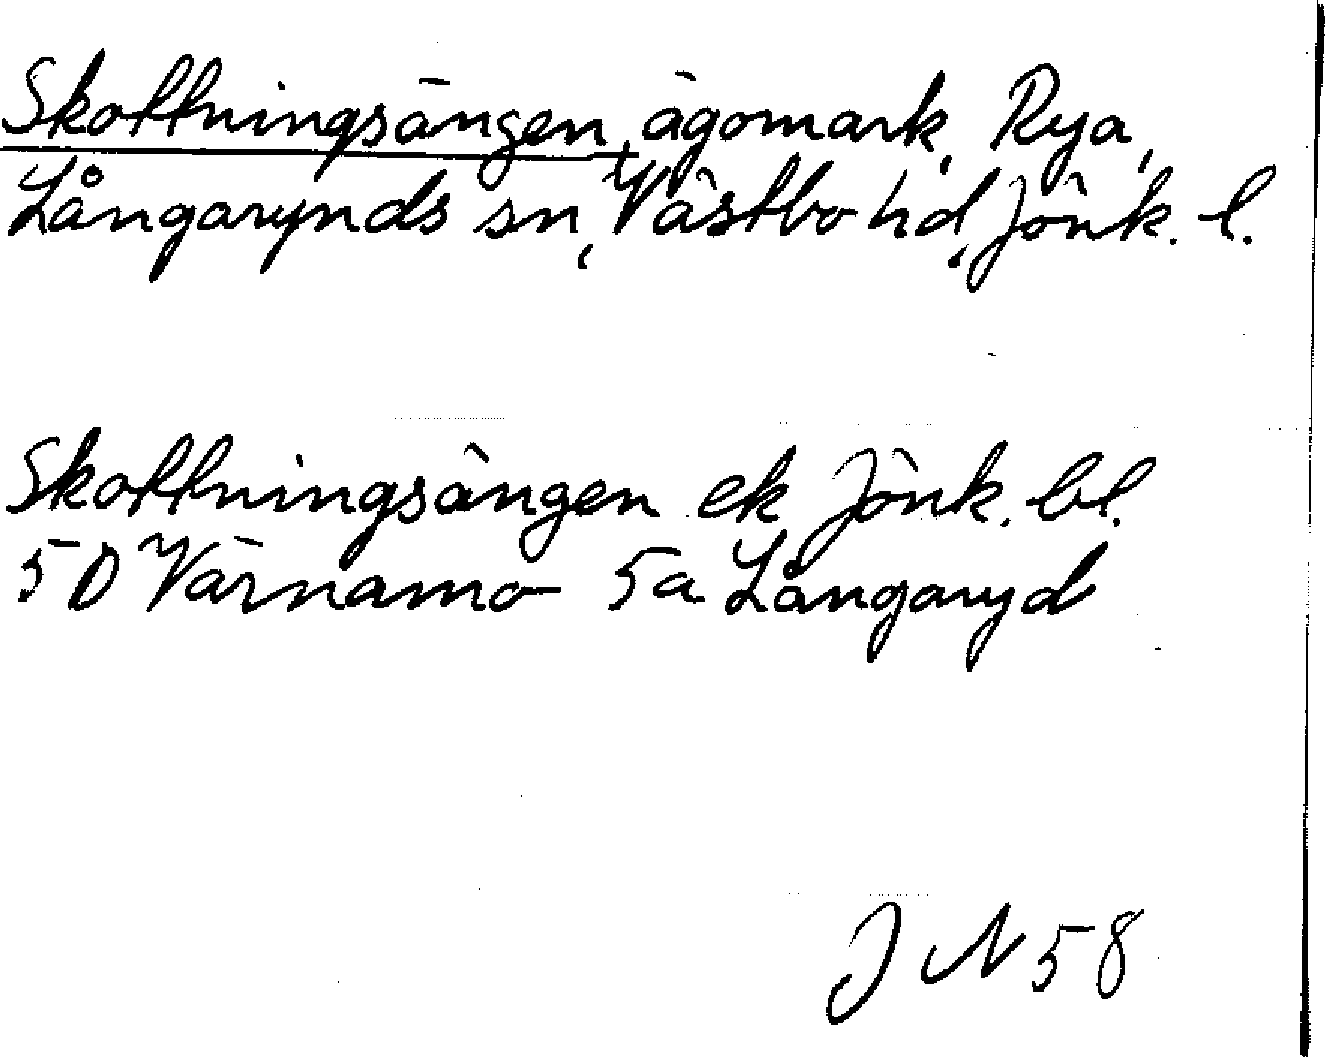 Skottningsängen, ägomark, Rya,
Långarynds sn, Västbo hd, Jönk. l.
Skottningsängen ek Jönk. bl.
5D Värnamo 5a Långaryd
J N 58